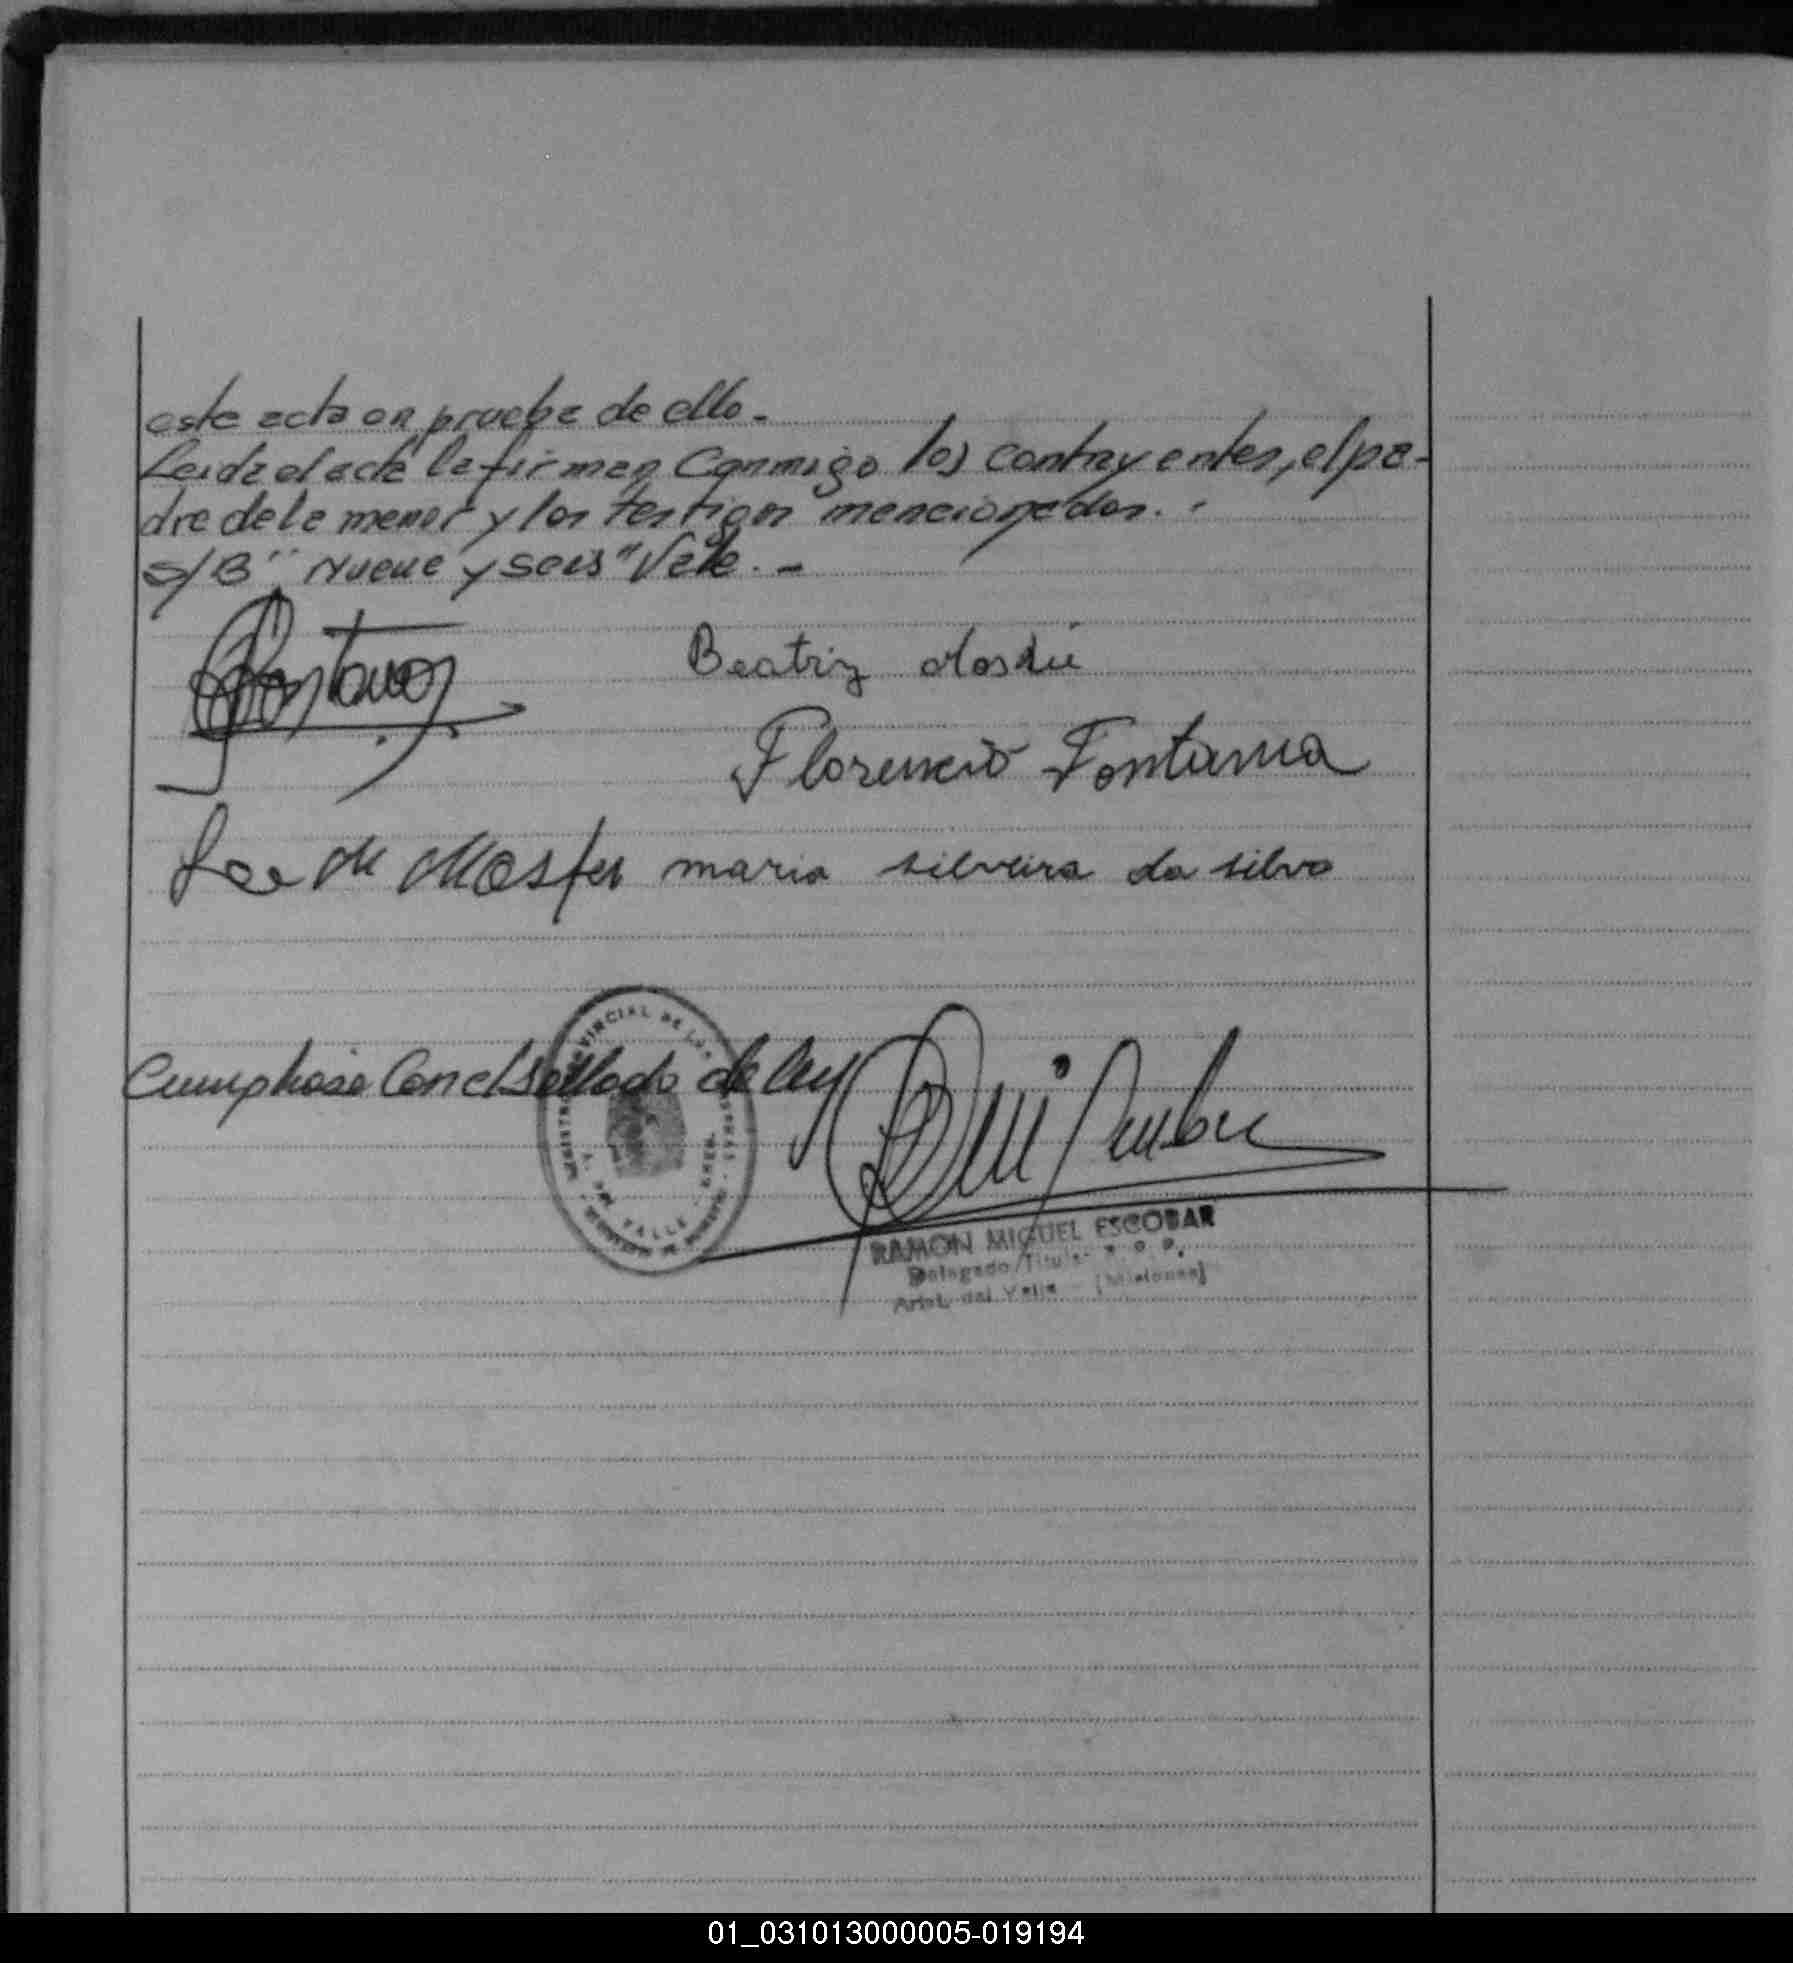 este acta en prueba de ello.-
Leida el acta la firman conmigo los contrayentes, el pa-
dre de la menor y los testigos mencionados. -
S/B "Nueve y seis" Vale. -
Beatriz
Florencio Fontana
maria silveira da silva
Cumplioso Con el Sellado de ley
RAMON MIGUEL ESCOBAR
Delegado Titular
Arist. del Valle - (Misiones)
01_031013000005-019194